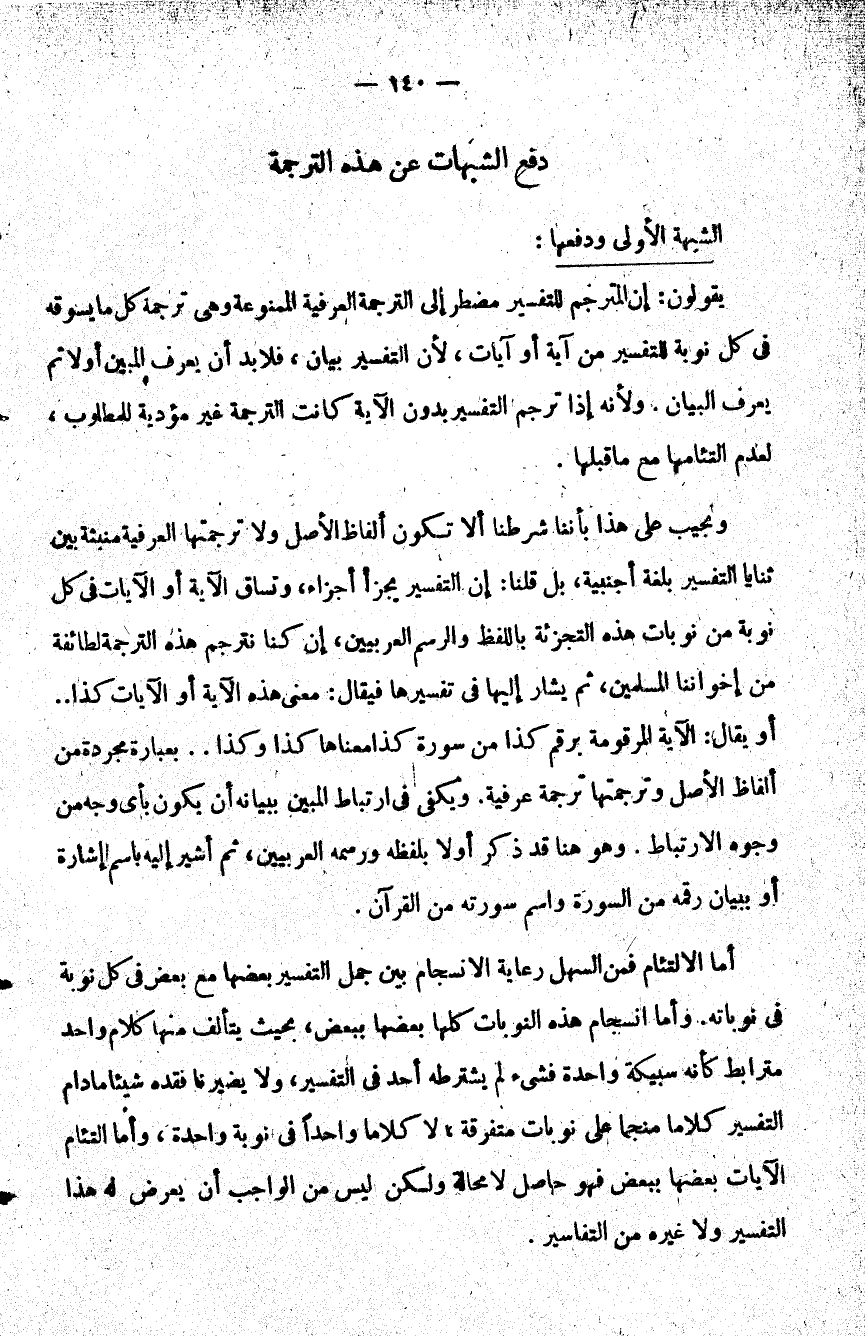 — ١٤٠ —
دفع الشبهات عن هذه الترجمة
الشبهة الأولى ودفعها :
يقولون: إن المترجم للتفسير مضطر إلى الترجمة العرفية الممنوعة وهى ترجمة كل ما يسوقه
فى كل نوبة للتفسير من آية أو آيات ، لأن التفسير بيان ، فلابد أن يعرف المبين أولا ثم
يعرف البيان . ولأنه إذا ترجم التفسير بدون الآية كانت الترجمة غير مؤدية للمطلوب ،
لعدم التئامها مع ماقبلها .
ونجيب على هذا بأننا شرطنا ألا تكون ألفاظ الأصل ولا ترجمتها العرفية منبثة بين
ثنايا التفسير بلغة أجنبية، بل قلنا: إن التفسير يجزأ أجزاء، وتساق الآية أو الآيات فى كل
نوبة من نوبات هذه التجزئة باللفظ والرسم العربيين، إن كنا نترجم هذه الترجمة لطائفة
من إخواننا المسلمين، ثم يشار إليها فى تفسيرها فيقال: معنى هذه الآية أو الآيات كذا..
أو يقال: الآية المرقومة برقم كذا من سورة كذا معناها كذا وكذا .. بعبارة مجردة من
ألفاظ الأصل وترجمتها ترجمة عرفية. ويكفى فى ارتباط المبين ببيانه أن يكون بأى وجه من
وجوه الارتباط . وهو هنا قد ذكر أولا بلفظه ورسمه العربيين، ثم أشير إليه باسم الإشارة
أو ببيان رقمه من السورة واسم سورته من القرآن .
أما الالتئام فمن السهل رعاية الانسجام بين جمل التفسير بعضها مع بعض فى كل نوبة
فى نوباته. وأما انسجام هذه النوبات كلها بعضها ببعض، بحيث يتألف منها كلام واحد
مترابط كأنه سبيكة واحدة فشىء لم يشترطه أحد فى التفسير، ولا يضيرنا فقده شيئا مادام
التفسير كلاما منجما على نوبات متفرقة ؛ لا كلاما واحداً فى نوبة واحدة ، وأما التئام
الآيات بعضها ببعض فهو حاصل لا محالة ولكن ليس من الواجب أن يعرض له هذا
التفسير ولا غيره من التفاسير .